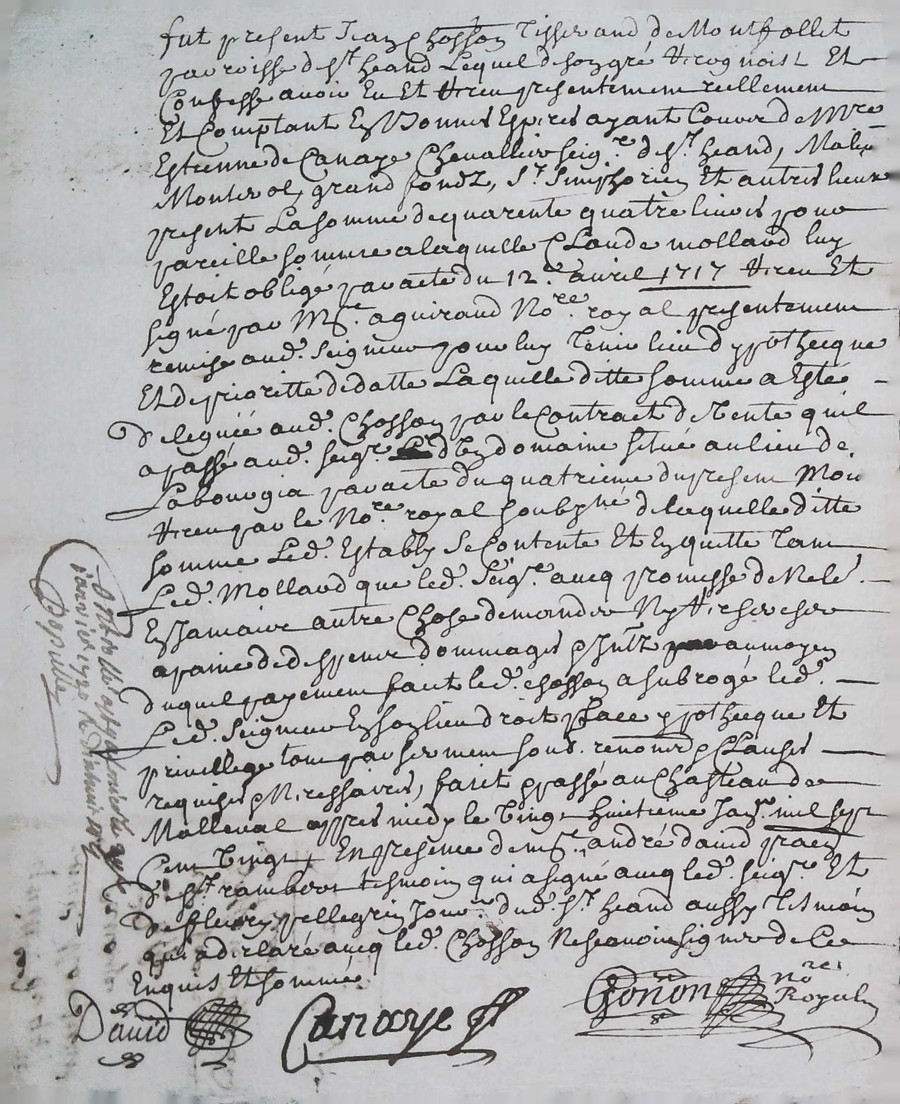 fut present Jean Chosson Tisserand de Montfollet
parroisse de st heand Lequel de son gré a recognoist Et
Confesse avoir Eu Et Receu presentement reellement
Et Comptant En Bonnes Espèces ayant Cours de Mre
Estienne de Canaye Chevallier seigr. de st heand, Malleval
Monterol, grand fond, st Simphorien Et autres lieux
present La somme de quarente quatre livres pour
pareille somme a laquelle Claude molland luy
Estoit obligé par acte du 12e. avril 1717 Receu Et
signé par Me. aguiraud Nore. royal presentement
remise aud. seigneur pour luy Tenir lieu d ypothecque
Et de prioritte de datte Laquelle ditte somme a Esté
deleguée aud. Chosson par le Contract de Vente quil
a passé aud. seigr d'un domaine situé au lieu de
Labourgia par acte du quatrieme du present Mois
Receu par le Nore. royal soubsné de laquelle ditte
somme Led. Estably se Contente Et En quitte Tant
Led. Molland que led. seigr. avecq promesse de Ne le.
En Jamais autre Chose demander Ny Rechercher
a paine de despens dommages
duquel payement faict led. chosson a subrogé led.
Led. Seigneur En son lieu droit place ypothecque Et
privillege tout par serment soubs. renonons Clauses
requises & Nessaires, faict & passé au Chasteau de
Malleval appres midy le Vingt huitieme Janr. mil sept
Cent Vingt En presence de mre. andré david
de st. rambert tesmoin qui a signé avecq led. seigr. Et
de fleury pellegrin dud. st. heand aussy Tesmoin
qui a declaré avecq led. Chosson Ne scavoir signer de Ce
Enquis Et sommé
David
Canaye
Gonon nore. Royal
janvier 1720